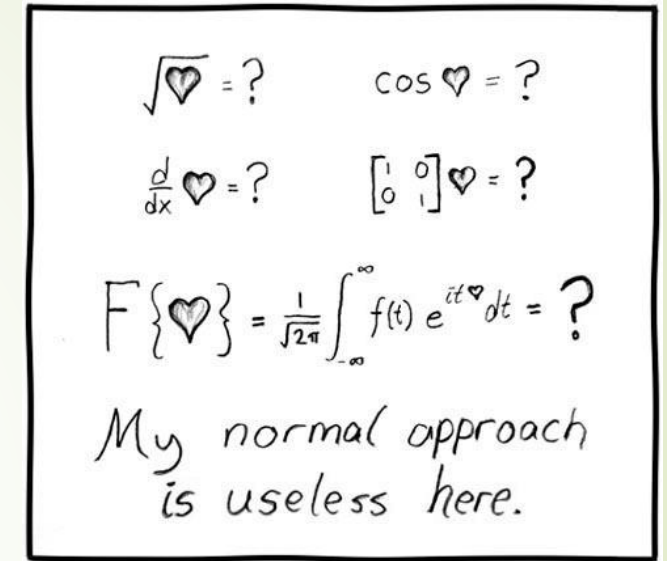 √♥ = ? cos ♥ = ?
d/dx ♥ = ? [1 0; 0 1] ♥ = ?
F{♥} = 1/√2π ∫_{-∞}^{∞} f(t) e^{it♥} dt = ?
My normal approach
is useless here.